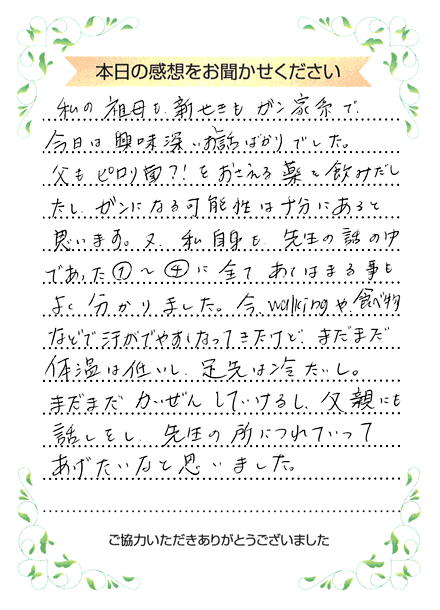 本日の感想をお聞かせください
私の祖母も、新せきもガン家系で、
今日は興味深いお話ばかりでした。
父もピロリ菌?!をおさえる薬を飲みだし
たし、ガンになる可能性は十分にあると
思います。又、私自身も、先生の話の中
であった①〜④に全てあてはまる事も
よく分かりました。今、walkingや食べ物
などで汗がでやすくなってきたけど、まだまだ
体温は低いし、足先は冷たいし。
まだまだかいぜんしていけるし、父親にも
話しをし、先生の所につれていって
あげたいなと思いました。
ご協力いただきありがとうございました